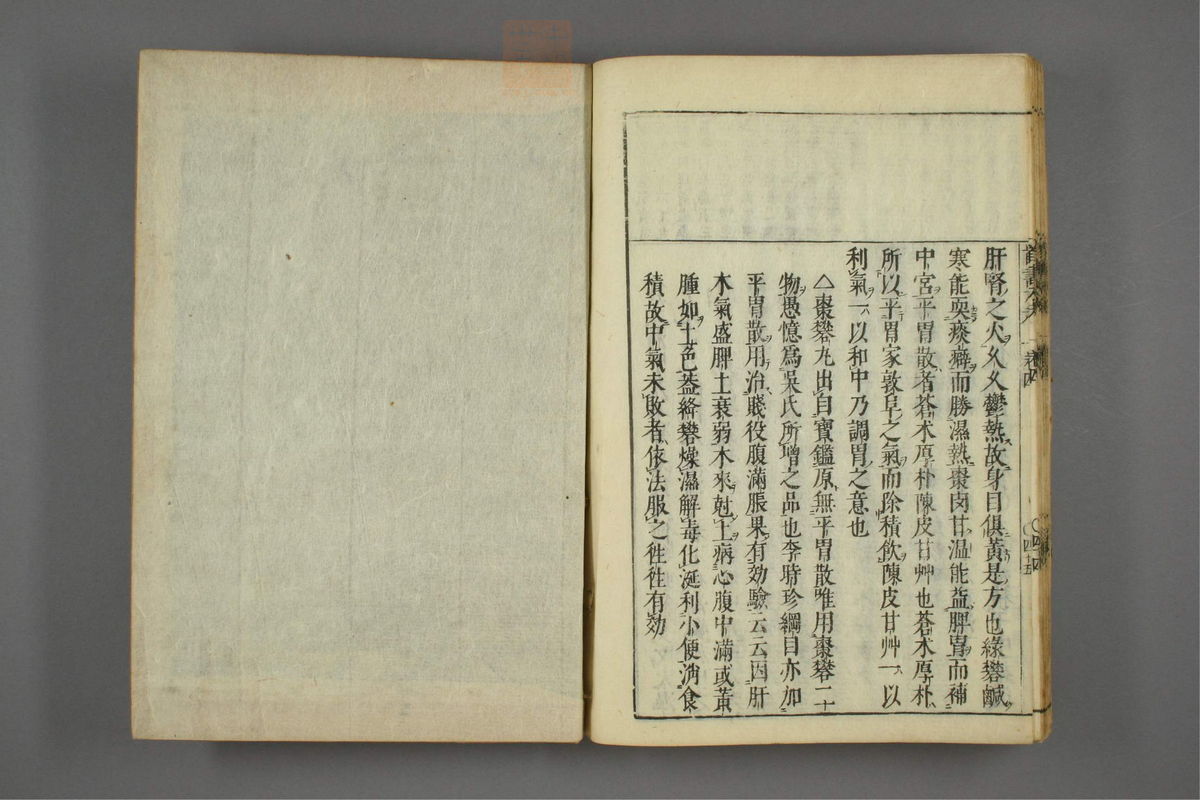 肝腎之火久久鬱熱故身目俱黃是方也綠礬鹹
寒能耎痰癖而勝濕熱棗肉甘温能益脾胃而補
中宮平胃散者蒼朮厚朴陳皮甘艸也蒼朮厚朴
所以平胃家敦阜之氣而除積飲陳皮甘艸一以
利氣一以和中乃調胃之意也
△棗礬丸出自寶鑑原無平胃散唯用棗礬二十
物愚憶爲吳氏所增之品也李時珍綱目亦加
平胃散用治賤役腹滿脹果有効驗云云因肝
木氣盛脾土衰弱木來尅土病心腹中滿或黃
腫如土色蓋絳礬燥濕解毒化涎利小便消食
積故中氣未敗者依法服之徃徃有効
卷四
四十五